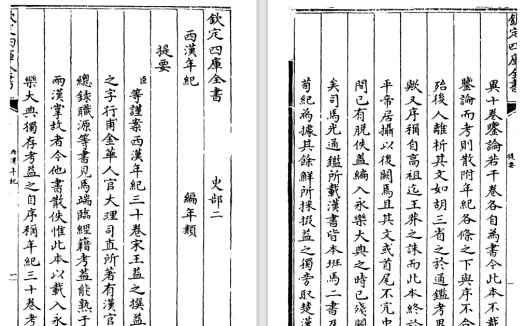 欽定四庫全書 史部二
西漢年紀 編年類
提要
臣等謹案西漢年紀三十卷宋王益之撰益
之字行甫金華人官大理司直所著有漢官
總錄職源等書見馬端臨經籍考益能熟于
兩漢掌故者今他書散佚惟此本以載入永
樂大典獨存考益之自序稱年紀三十卷考
欽定四庫全書
西漢年紀
一
欽定四庫全書
提要
異十卷鑒論若干卷各自為書今此本不載
鑒論而考則散附年紀各條之下與序不合
殆後人離析其文如胡三省之於通鑑考異
歟又序稱自高祖迄王莽之誅而此本終於
平帝居攝以後闕焉且其文或首尾不完中
間已有脫佚蓋編入永樂大典之時已殘闕
矣司馬光通鑑所載漢書皆本班馬二書及
荀紀為據其餘鮮所採掇益之獨旁取楚漢